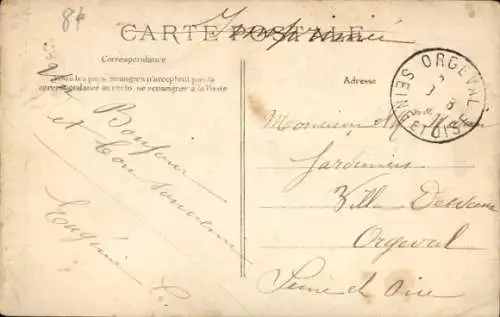 84
CARTE POSTALE
Correspondance
Tous les pays étrangers n'acceptent pas la
correspondance au recto, se renseigner à la Poste
Adresse
ORGEVAL
SEINE ET OISE
Bonjour
et bon souvenir
Eugénie
Monsieur
Jardinier
Villa
Orgeval
Seine et Oise